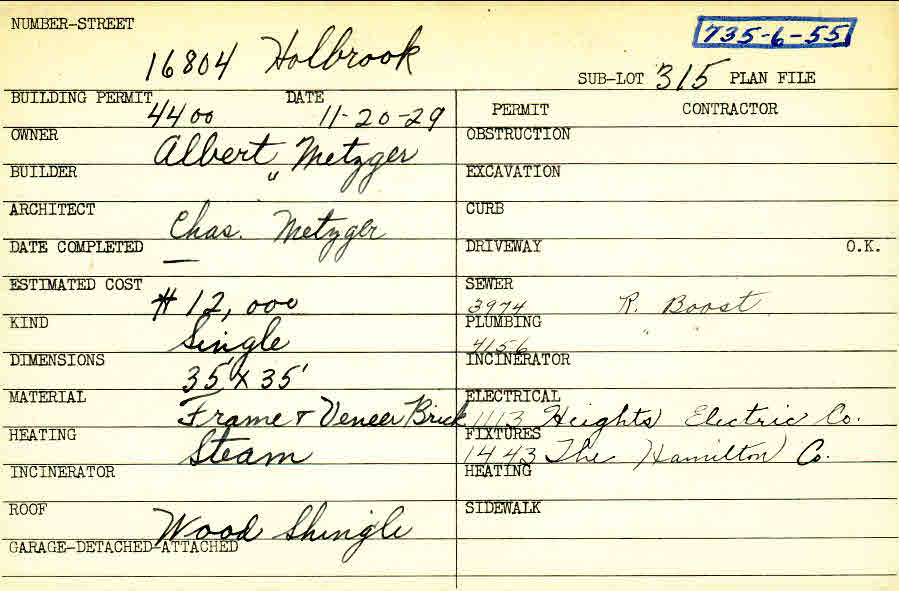 NUMBER-STREET
735-6-55
16804 Holbrook
SUB-LOT 315 PLAN FILE
BUILDING PERMIT DATE
4400 11-20-29
PERMIT CONTRACTOR
OWNER
Albert Metzger
BUILDER
"
ARCHITECT
Chas. Metzger
DATE COMPLETED
—
ESTIMATED COST
$12,000
KIND
Single
DIMENSIONS
35' X 35'
MATERIAL
Frame & Veneer Brick
HEATING
Steam
INCINERATOR
ROOF
Wood Shingle
GARAGE-DETACHED-ATTACHED
OBSTRUCTION
EXCAVATION
CURB
DRIVEWAY O.K.
SEWER
3974 R. Boost
PLUMBING
4156 " "
INCINERATOR
ELECTRICAL
1113 Heights Electric Co.
FIXTURES
1443 The Hamilton Co.
HEATING
SIDEWALK